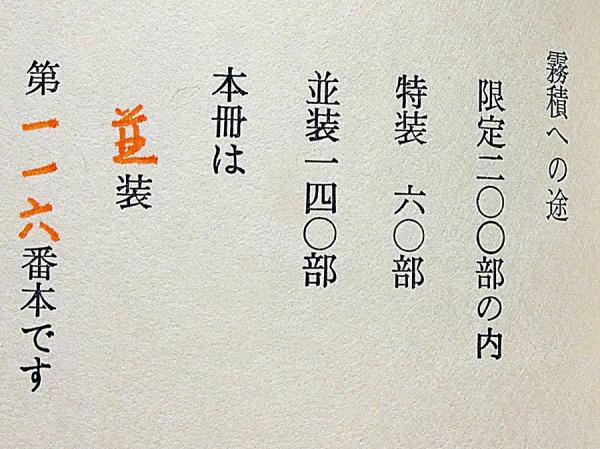 霧積への途
限定二〇〇部の内
特装 六〇部
並装一四〇部
本冊は
並装
第一一六番本です